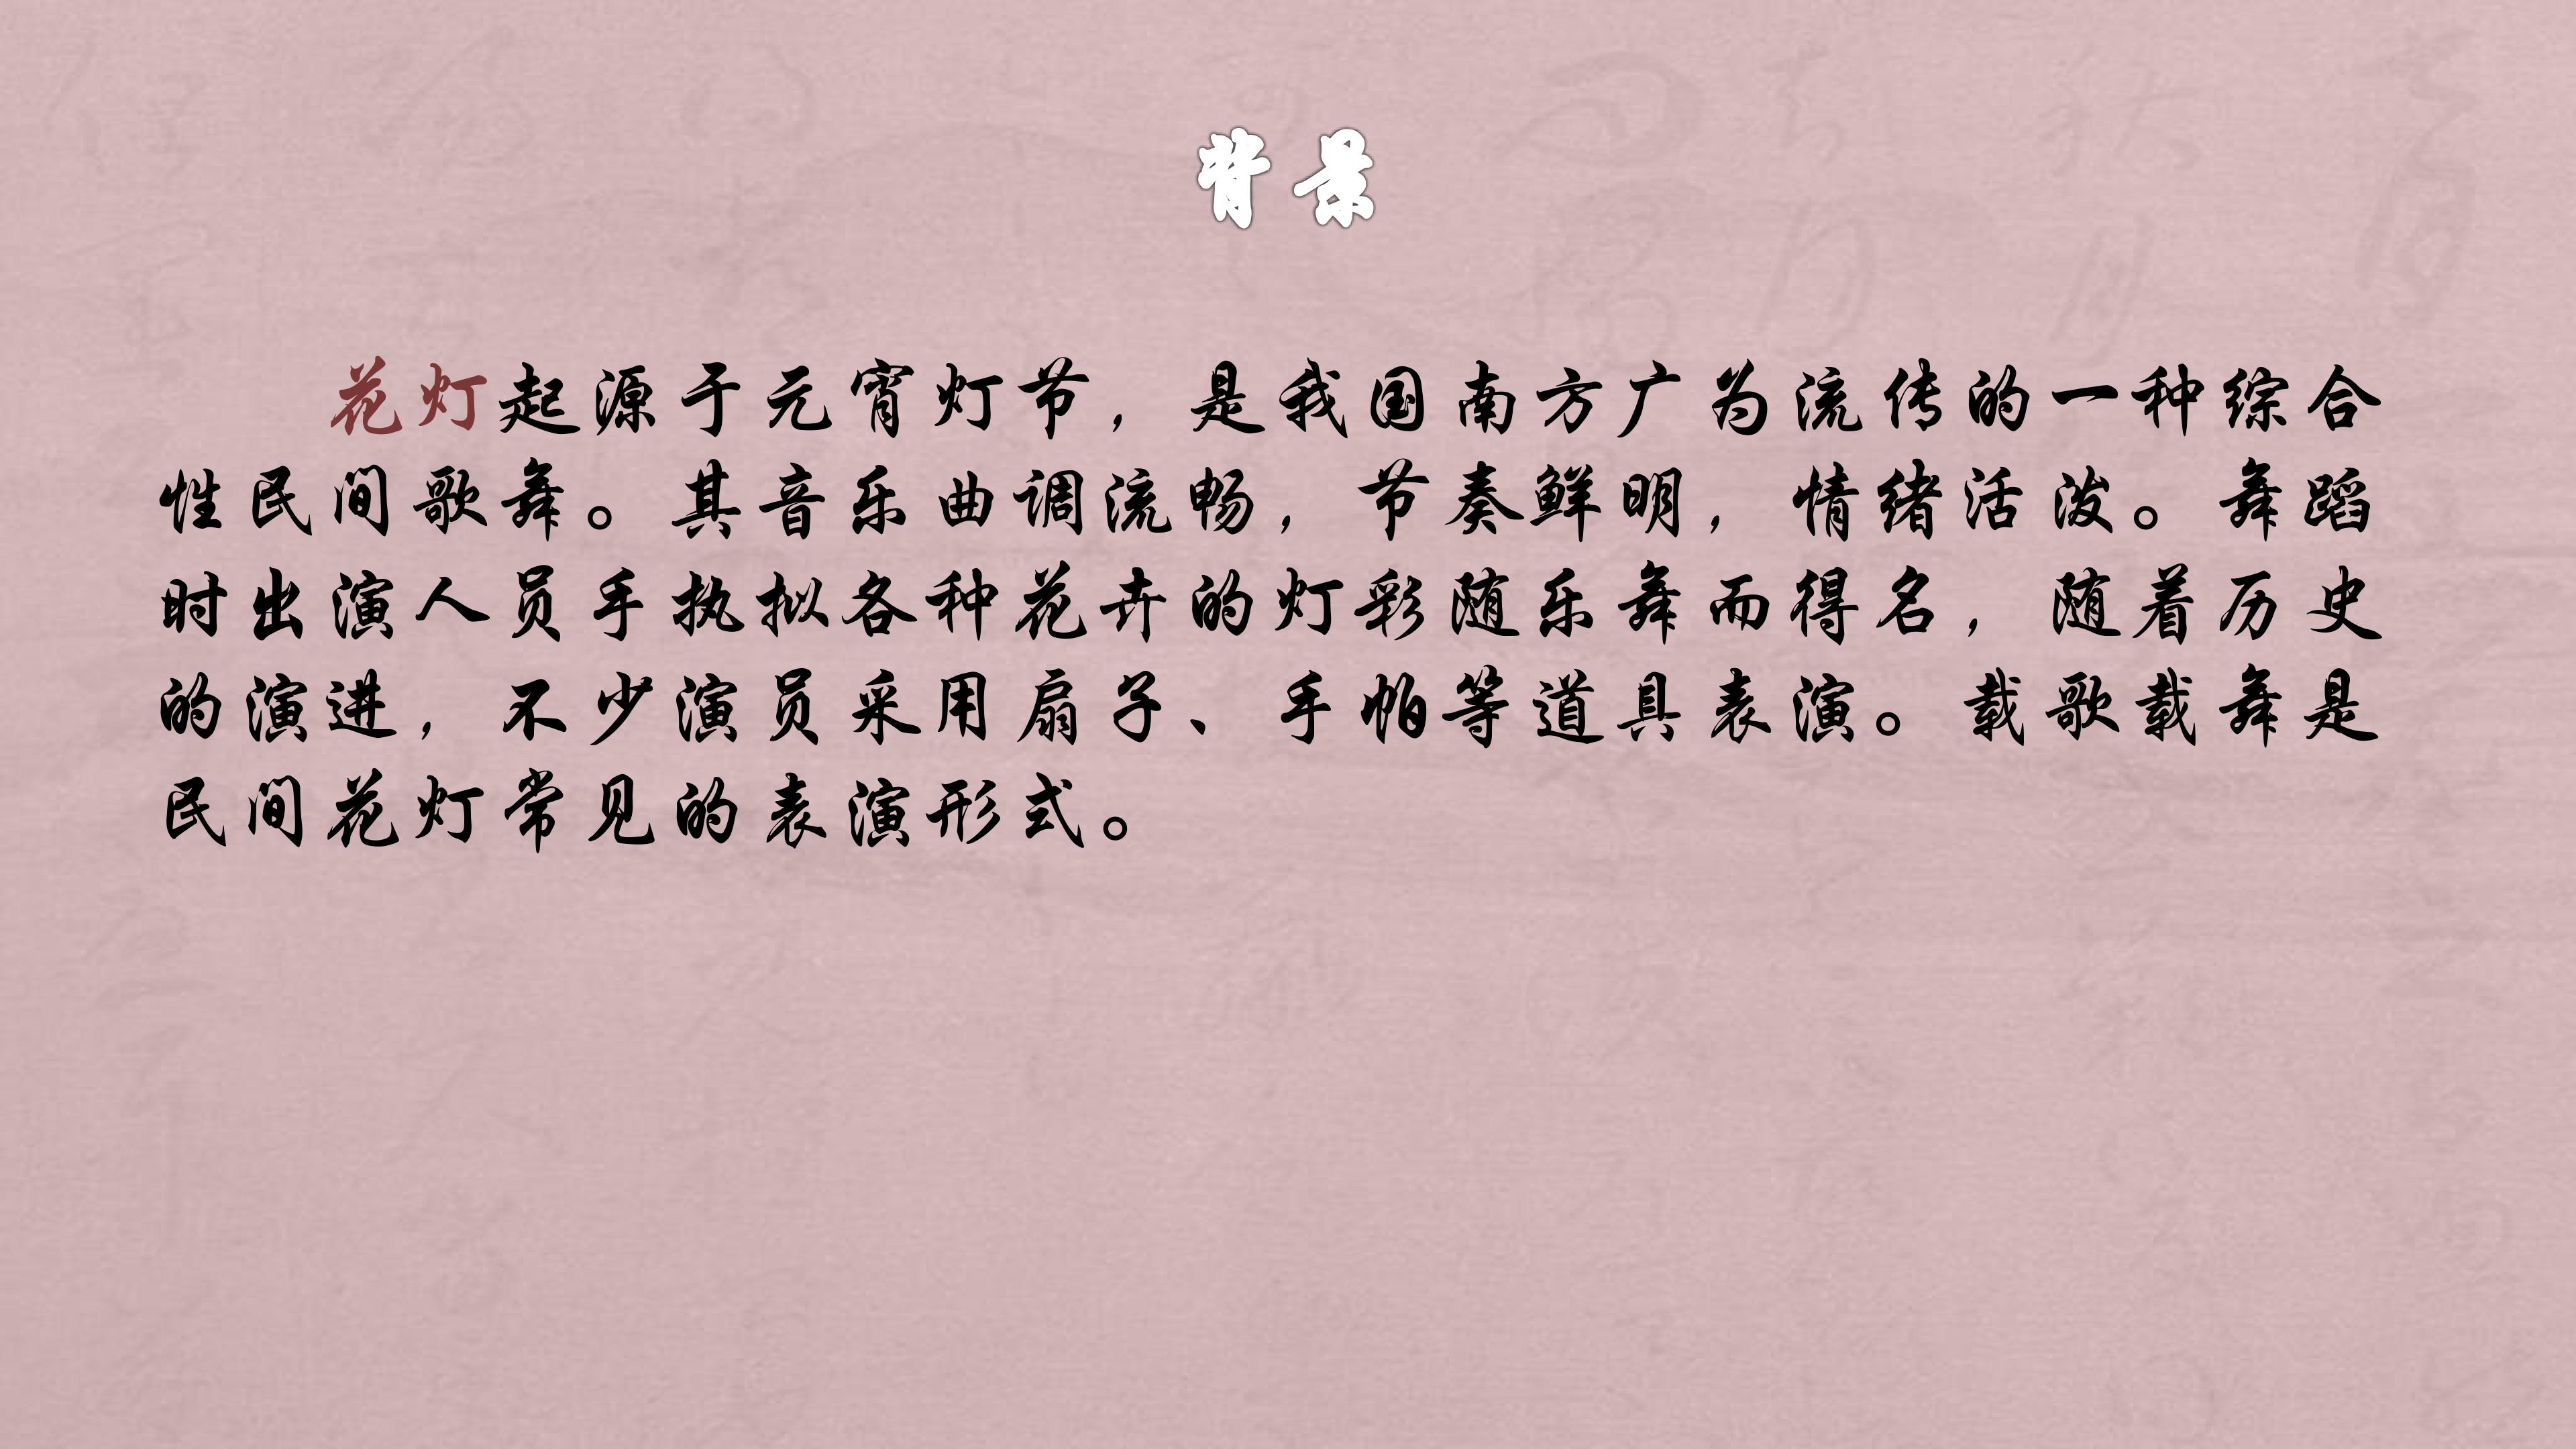 背景
花灯起源于元宵灯节，是我国南方广为流传的一种综合
性民间歌舞。其音乐曲调流畅，节奏鲜明，情绪活泼。舞蹈
时出演人员手执拟各种花卉的灯彩随乐舞而得名，随着历史
的演进，不少演员采用扇子、手帕等道具表演。载歌载舞是
民间花灯常见的表演形式。